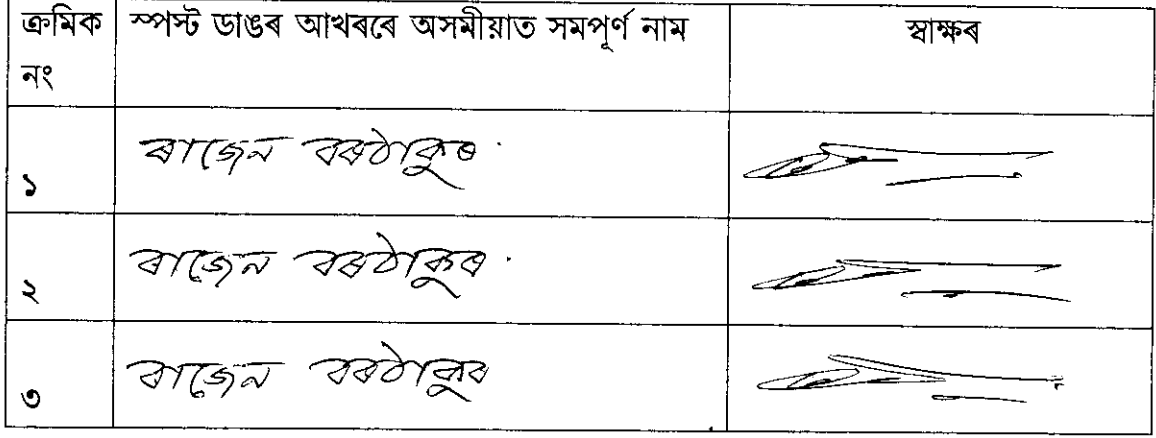 ক্ৰমিক নং স্পস্ট ডাঙৰ আখৰৰে অসমীয়াত সমপূৰ্ণ নাম স্বাক্ষৰ
১ ৰাজেন বৰঠাকুৰ
২ ৰাজেন বৰঠাকুৰ
৩ ৰাজেন বৰঠাকুৰ